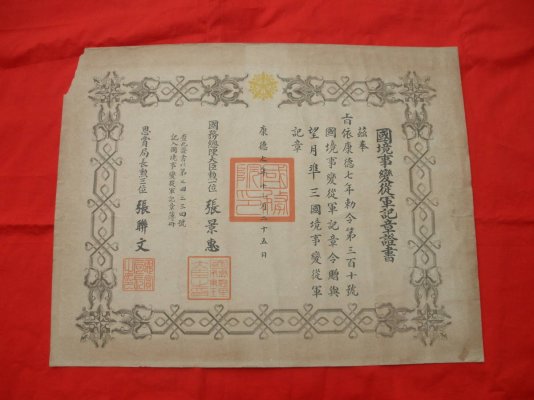 國境事變從軍記章證書
茲奉
旨依康德七年勅令第三百十號
國境事變從軍記章令贈與
望月準三國境事變從軍
記章
康德七年十月二十五日
國務總理大臣勲一位 張景惠
記入國境事變從軍記章簿冊
恩賞局長勲三位 張聯文